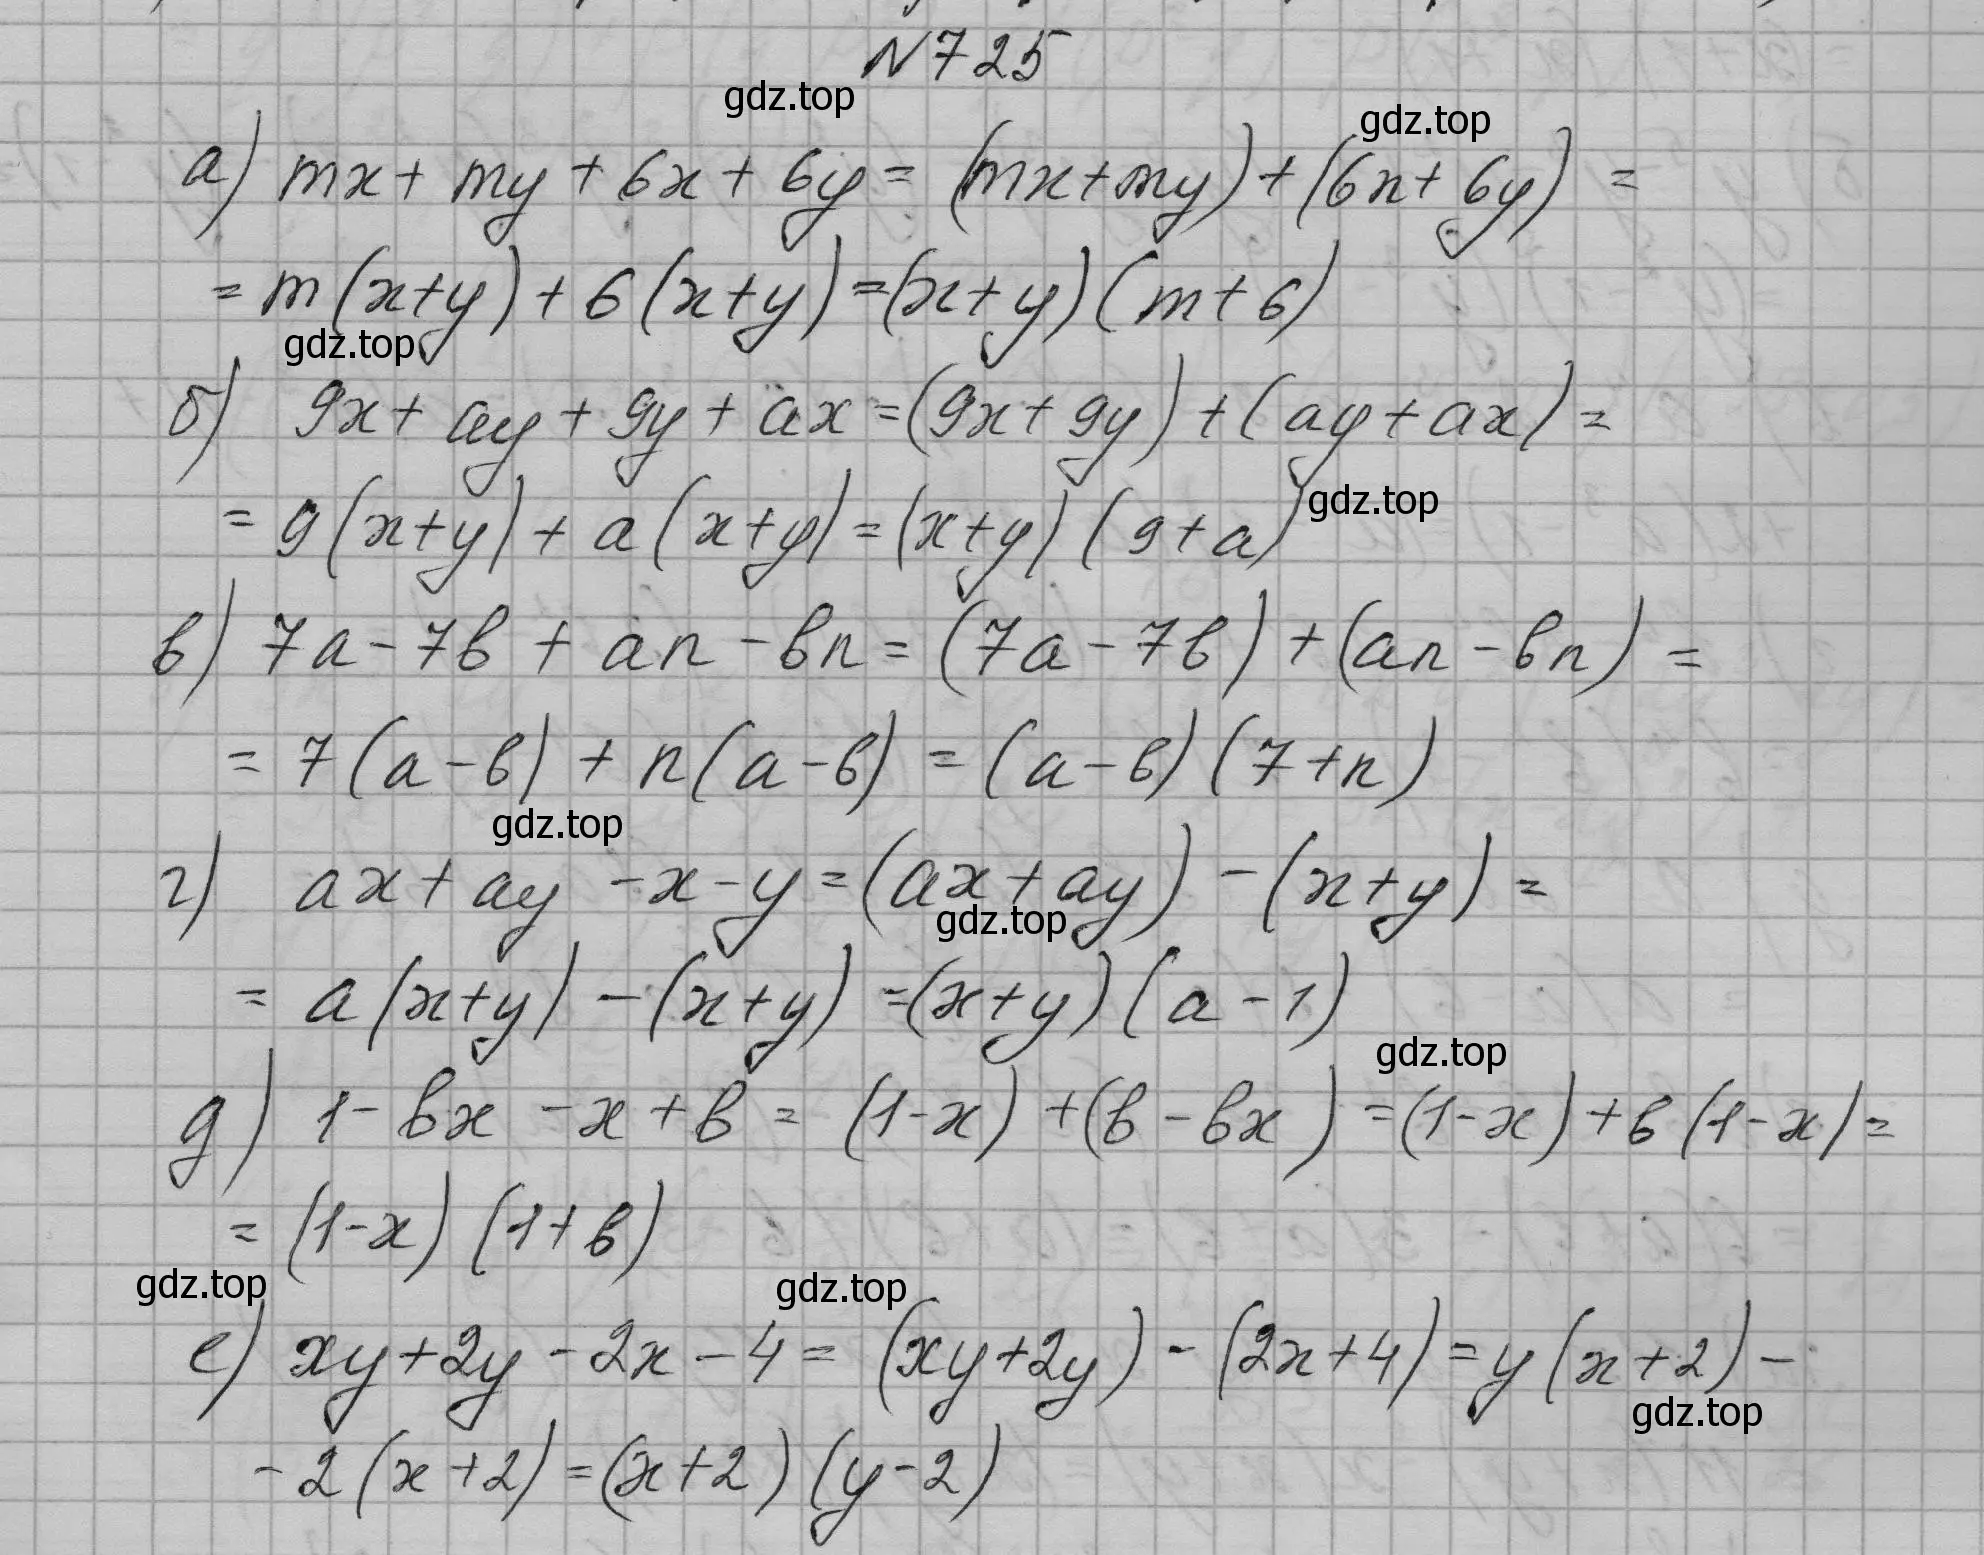 N725
gdz.top
gdz.top
а) mx + my + 6x + 6y = (mx + my) + (6x + 6y) =
= m(x+y) + 6(x+y) = (x+y)(m+6)
gdz.top
б) 9x + ay + 9y + ax = (9x + 9y) + (ay + ax) =
= 9(x+y) + a(x+y) = (x+y)(9+a)
gdz.top
в) 7a - 7b + an - bn = (7a - 7b) + (an - bn) =
= 7(a-b) + n(a-b) = (a-b)(7+n)
gdz.top
г) ax + ay - x - y = (ax + ay) - (x+y) =
gdz.top
= a(x+y) - (x+y) = (x+y)(a-1)
gdz.top
д) 1 - bx - x + b = (1-x) + (b - bx) = (1-x) + b(1-x) =
= (1-x)(1+b)
gdz.top
gdz.top
е) xy + 2y - 2x - 4 = (xy + 2y) - (2x + 4) = y(x+2) -
gdz.top
- 2(x+2) = (x+2)(y-2)